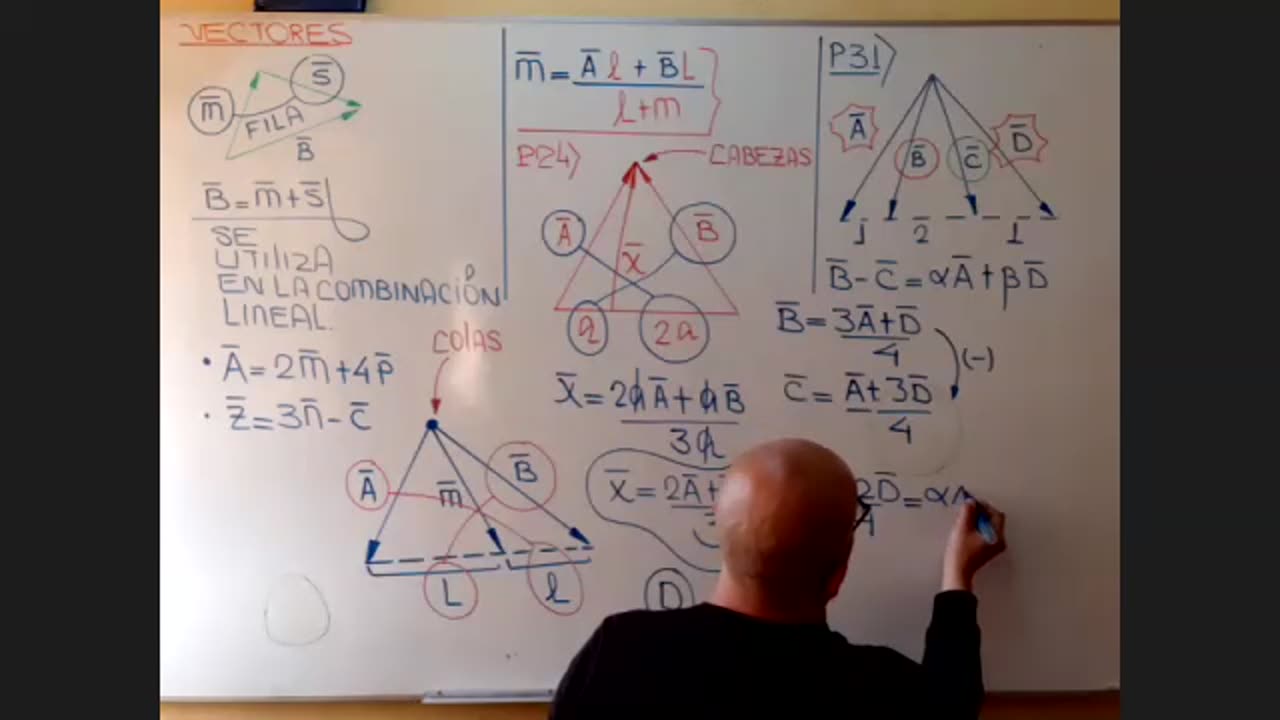 VECTORES
m̄
S̄
FILA
B̄
B̄ = m̄ + S̄
SE
UTILIZA
EN LA COMBINACIÓN
LINEAL.
• Ā = 2m̄ + 4p̄
• Z̄ = 3n̄ - C̄
COLAS
Ā
m̄
B̄
L
l
m̄ = Āl + B̄L
l + m
P24)
CABEZAS
Ā
B̄
X̄
a
2a
X̄ = 2aĀ + aB̄
3a
X̄ = 2Ā +
D
P31)
Ā
B̄
C̄
D̄
1 2 1
B̄ - C̄ = αĀ + βD̄
B̄ = 3Ā + D̄
4
(-)
C̄ = Ā + 3D̄
4
2D̄ = αA
4